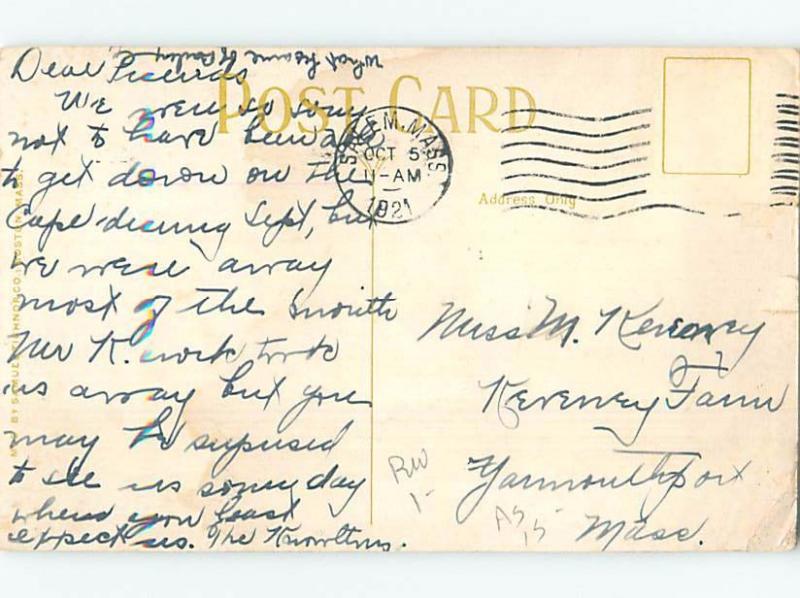 What became of
Dear Friends
We were so sorry
not to have been able
to get down on the
Cape during Sept, but
we were away
most of the month
Mr K. work took
us away but you
may be supused
to see us some day
when you least
expect us. The Knowltons.
POST CARD
SALEM, MASS.
OCT 5
11-AM
1921
Address Only
Miss M. Kereney
Kereney Farm
Yarmouthport
Mass.
RW
1-
AS
15